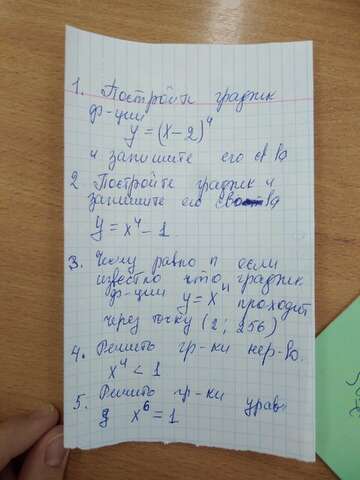 1. Постройте график
ф-ции
y = (x-2)⁴
и запишите его св-ва
2 Постройте график и
запишите его св-ва
y = x⁴ - 1
3. Чему равно n если
известно что график
ф-ции y = xⁿ проходит
через точку (2; 256)
4. Решить гр-ки нер-во.
x⁴ < 1
5. Решить гр-ки урав
x⁶ = 1